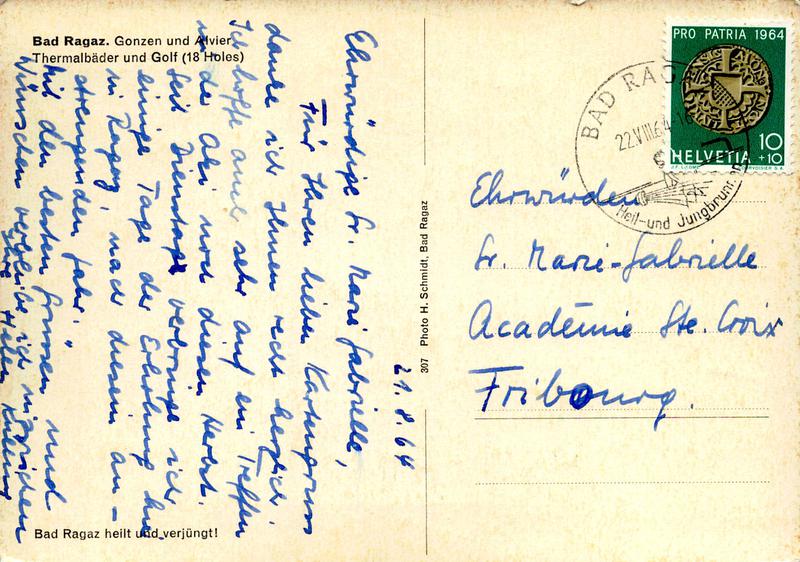 Bad Ragaz. Gonzen und Alvier
Thermalbäder und Golf (18 Holes)
21.8.64
Ehrwürdige Sr. Marie Gabrielle,
Für Ihren lieben Kartengruss
danke ich Ihnen recht herzlich.
Ich hoffe auch sehr auf ein Treffen
in der Aki noch diesen Herbst.
Seit Dienstag verbringe ich
einige Tage der Erholung hier
in Ragaz, nach diesem an-
strengenden Jahr.
Mit den besten Grüssen und
Wünschen verbleibe ich inzwischen
Ihre Helen
Bad Ragaz heilt und verjüngt!
307 Photo H. Schmidt, Bad Ragaz
PRO PATRIA 1964
10
+10
HELVETIA
BAD RAGAZ
22.VIII.64
Heil- und Jungbrunnen
Ehrwürden
Sr. Marie-Gabrielle
Académie Ste. Croix
Fribourg.